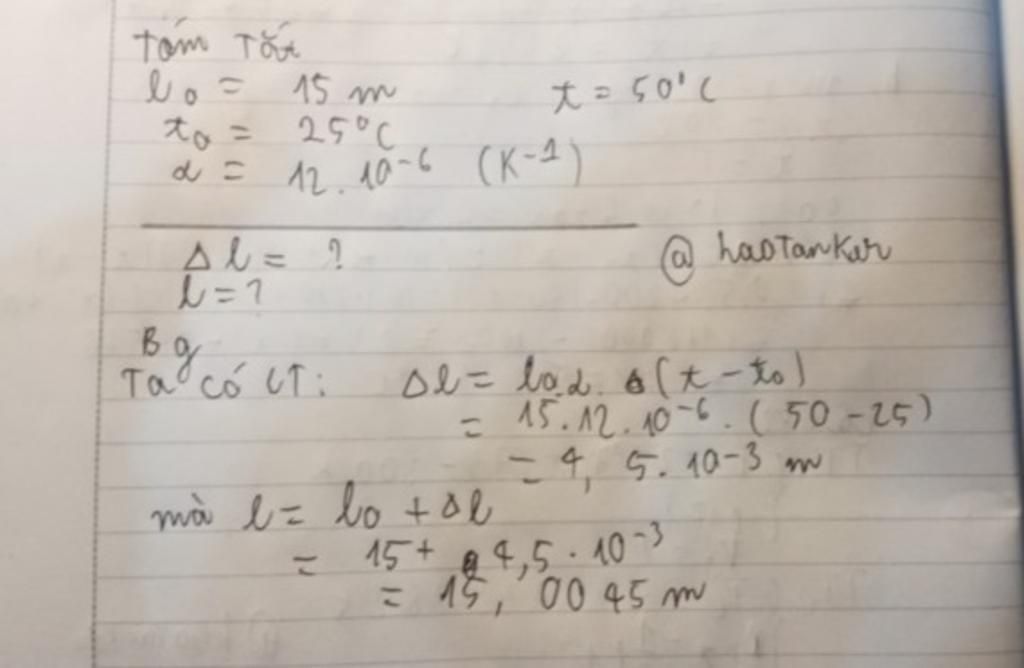 Tóm Tắt
l₀ = 15 m t = 50°C
t₀ = 25°C
α = 12 . 10⁻⁶ (K⁻¹)
Δl = ?
@ haotankar
l = ?
Bg
Ta có CT: Δl = l₀.α. (t - t₀)
= 15.12.10⁻⁶.(50 - 25)
= 4,5.10⁻³ m
mà l = l₀ + Δl
= 15 + 4,5.10⁻³
= 15,0045 m